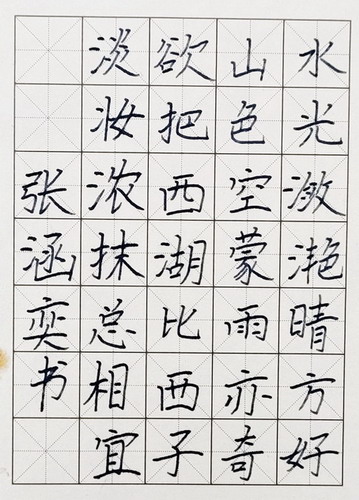 水光潋滟晴方好
山色空蒙雨亦奇
欲把西湖比西子
淡妆浓抹总相宜
张涵奕书